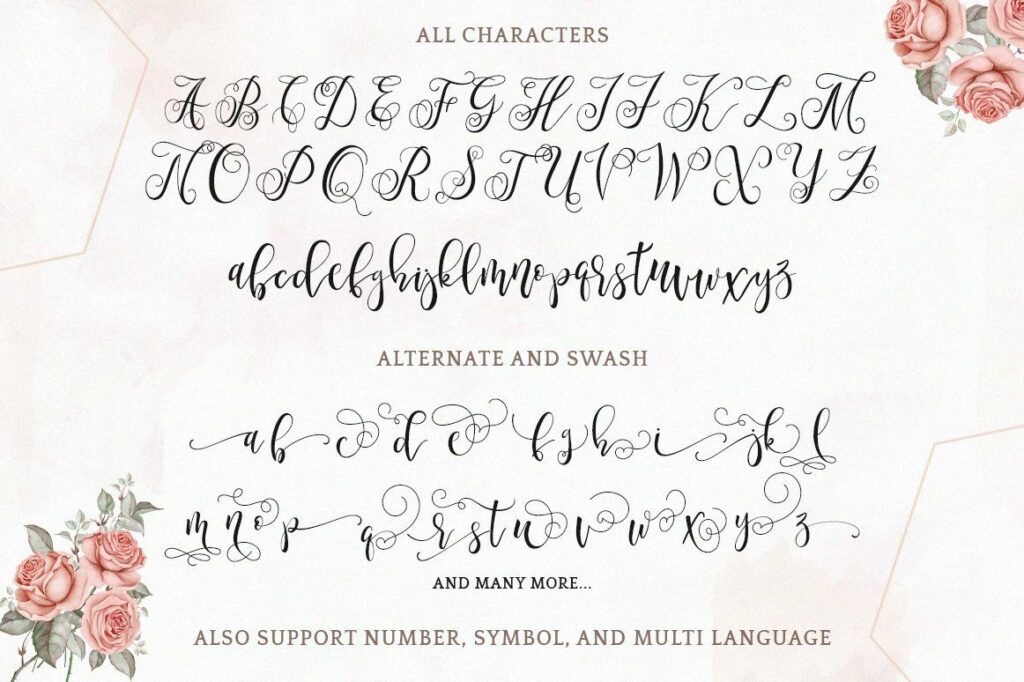 ALL CHARACTERS
A B C D E F G H I J K L M
N O P Q R S T U V W X Y Z
abcdefghijklmnopqrstuvwxyz
ALTERNATE AND SWASH
a b c d e f g h i j k l
m n o p q r s t u v w x y z
AND MANY MORE...
ALSO SUPPORT NUMBER, SYMBOL, AND MULTI LANGUAGE